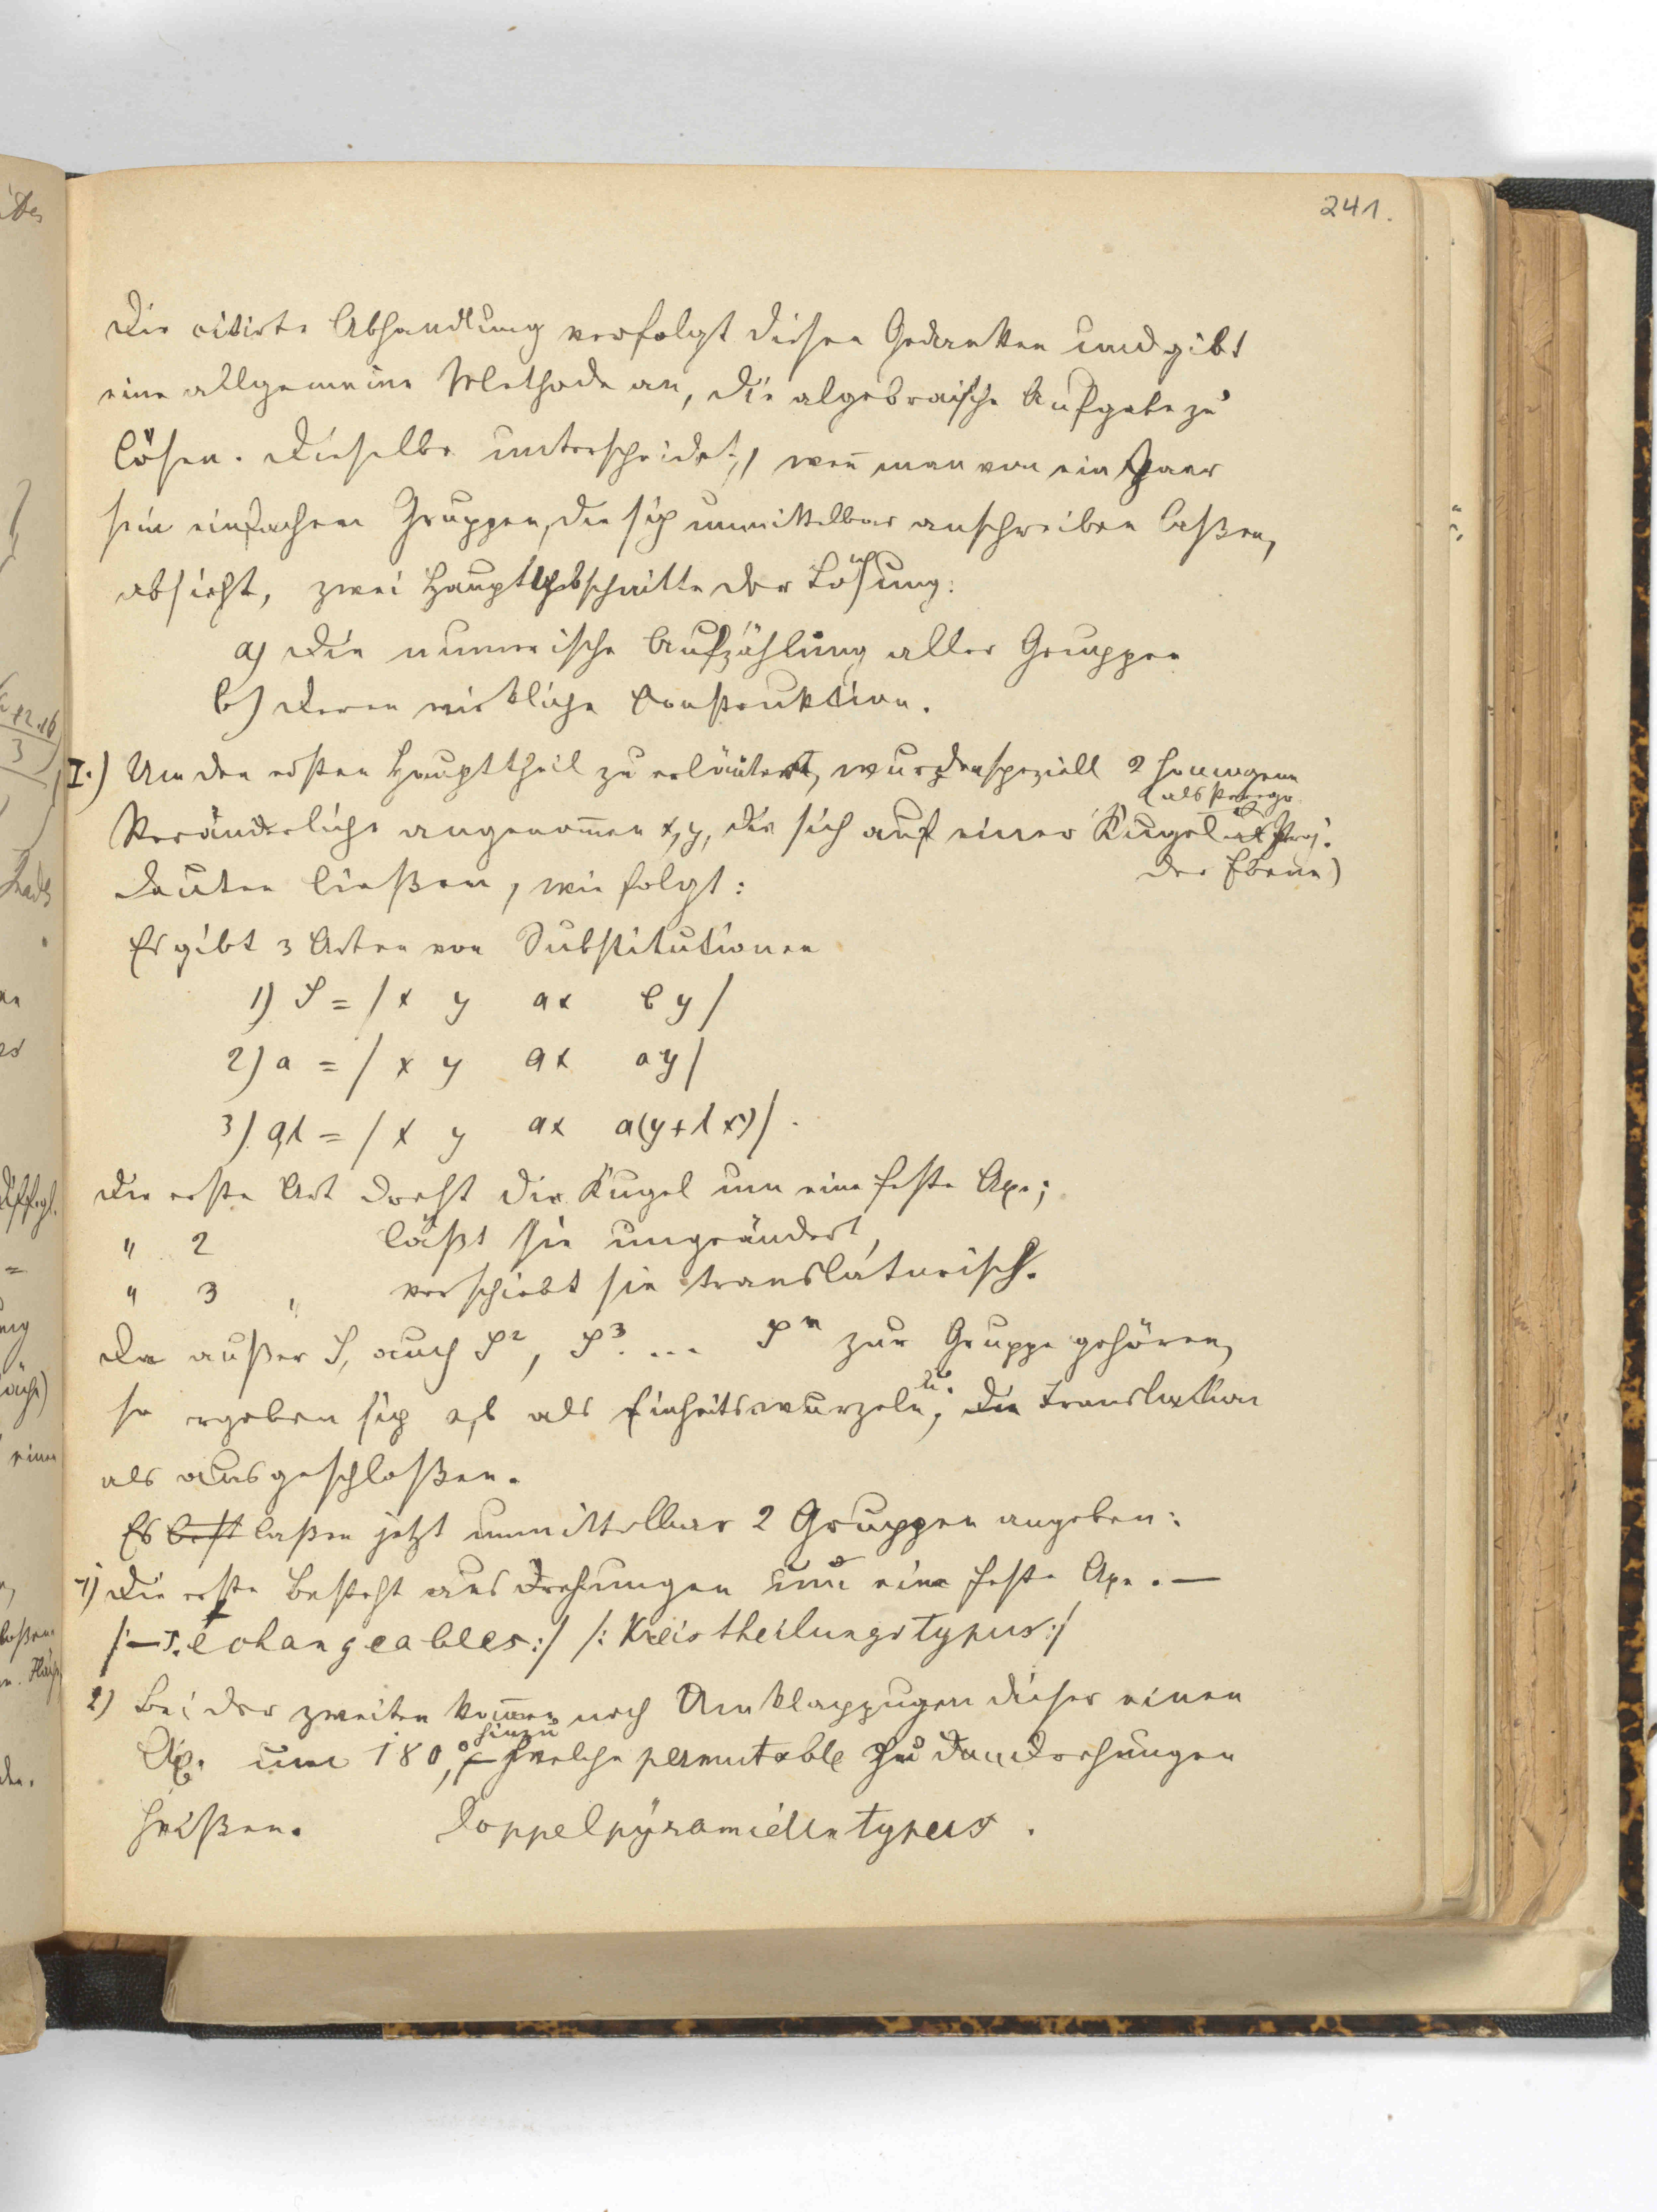 241.
Die citirte Abhandlung verfolgt diesen Gedanken und gibt
eine allgemeine Methode an, die algebraische Aufgabe zu
lösen. Dieselbe unterscheidet, wen̄ man von ein Paar
sein einfachen Gruppen, die sich unmittelbar anschreiben laßen,
absieht, zwei Hauptabschnitte der Lösung:
a) Die numerische Aufzählung aller Gruppen
b) Deren wirkliche Construktion.
I.) Um den ersten Haupttheil zu erläutert, wurden speziell 2 homogene
Veränderliche angenom̄en x, y, die sich auf einer Kugel (als
der Ebene)
deuten ließen, wie folgt:
Es gibt 3 Arten von Substitutionen
1) S = / x y ax by /
2) a = / x y ax ay /
3) aλ = / x y ax a(y+λx) / .
Die erste Art dreht die Kugel um eine feste Axe;
" 2 läßt sie ungeändert,
" 3 " verschiebt sie translatorisch.
Da außer S, auch S², S³. ... Sⁿ zur Gruppe gehören,
so ergeben sich a, b als Einheitswurzeln; die Translation
als ausgeschloßen.
Es laßen jetzt unmittelbar 2 Gruppen angeben:
1) Die erste besteht aus Drehungen um eine feste Axe. —
/:— échangeables:/ /: Kreistheilungstypus:/
2) Bei der zweiten kom̄en noch Umklappugen dieser einen
Axe um 180,° hinzu welche permutable zu den Drehungen
heißen. Doppelpyramidentypus.